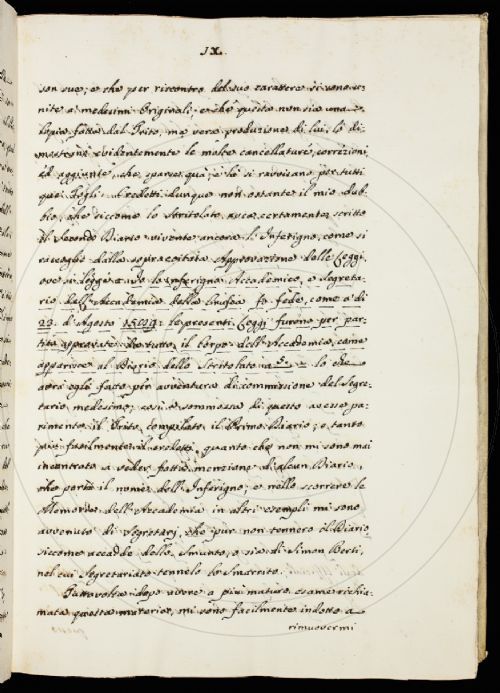 IX.
son sue; e che per riscontro del suo carattere si sono u-
nite a' medesimi Originali; e che questa non sia una
Copia fatta dal Trito, ma vera produzione di lui, lo di-
mostrano evidentemente le molte cancellature, correzioni,
ed aggiunte, che sparse quà, e là si ravvisano per tutti
quei Fogli. Credetti dunque non ostante il mio dub-
bio, che siccome lo Stritolato avea certamente scritto
il Secondo Diario vivente ancora l'Inferigno, come si
raccoglie dalla sopraccitata Approvazione delle Leggi,
ove si legge = Io lo Inferigno Accademico, e Segreta-
rio dell'Accademia della Crusca fo fede, come a dì
22. d'Agosto 1589: le presenti Leggi furono per par-
tito approvate da tutto il corpo dell'Accademia, come
apparisce al Diario dello Stritolato a 5. = lo che
avrà egli fatto per avventura di commissione del Segre-
tario medesimo; così a sommossa di questo avesse pa-
rimente il Trito compilato il Primo Diario; e tanto
più facilmente il credetti, quanto che non mi sono mai
incontrato a veder fatta menzione di alcun Diario,
che porti il nome dell'Inferigno; e nello scorrere le
Memorie dell'Accademia in altri esempli mi sono
avvenuto di Segretarj, che pur non tennero il Diario,
siccome accadde dello Smunto, o sia di Simon Berti,
nel cui Segretariato tennelo lo Smarrito.
Tuttavolta dopo avere a più maturo esame richia-
mata questa materia, mi sono facilmente indotto a
rimuovermi